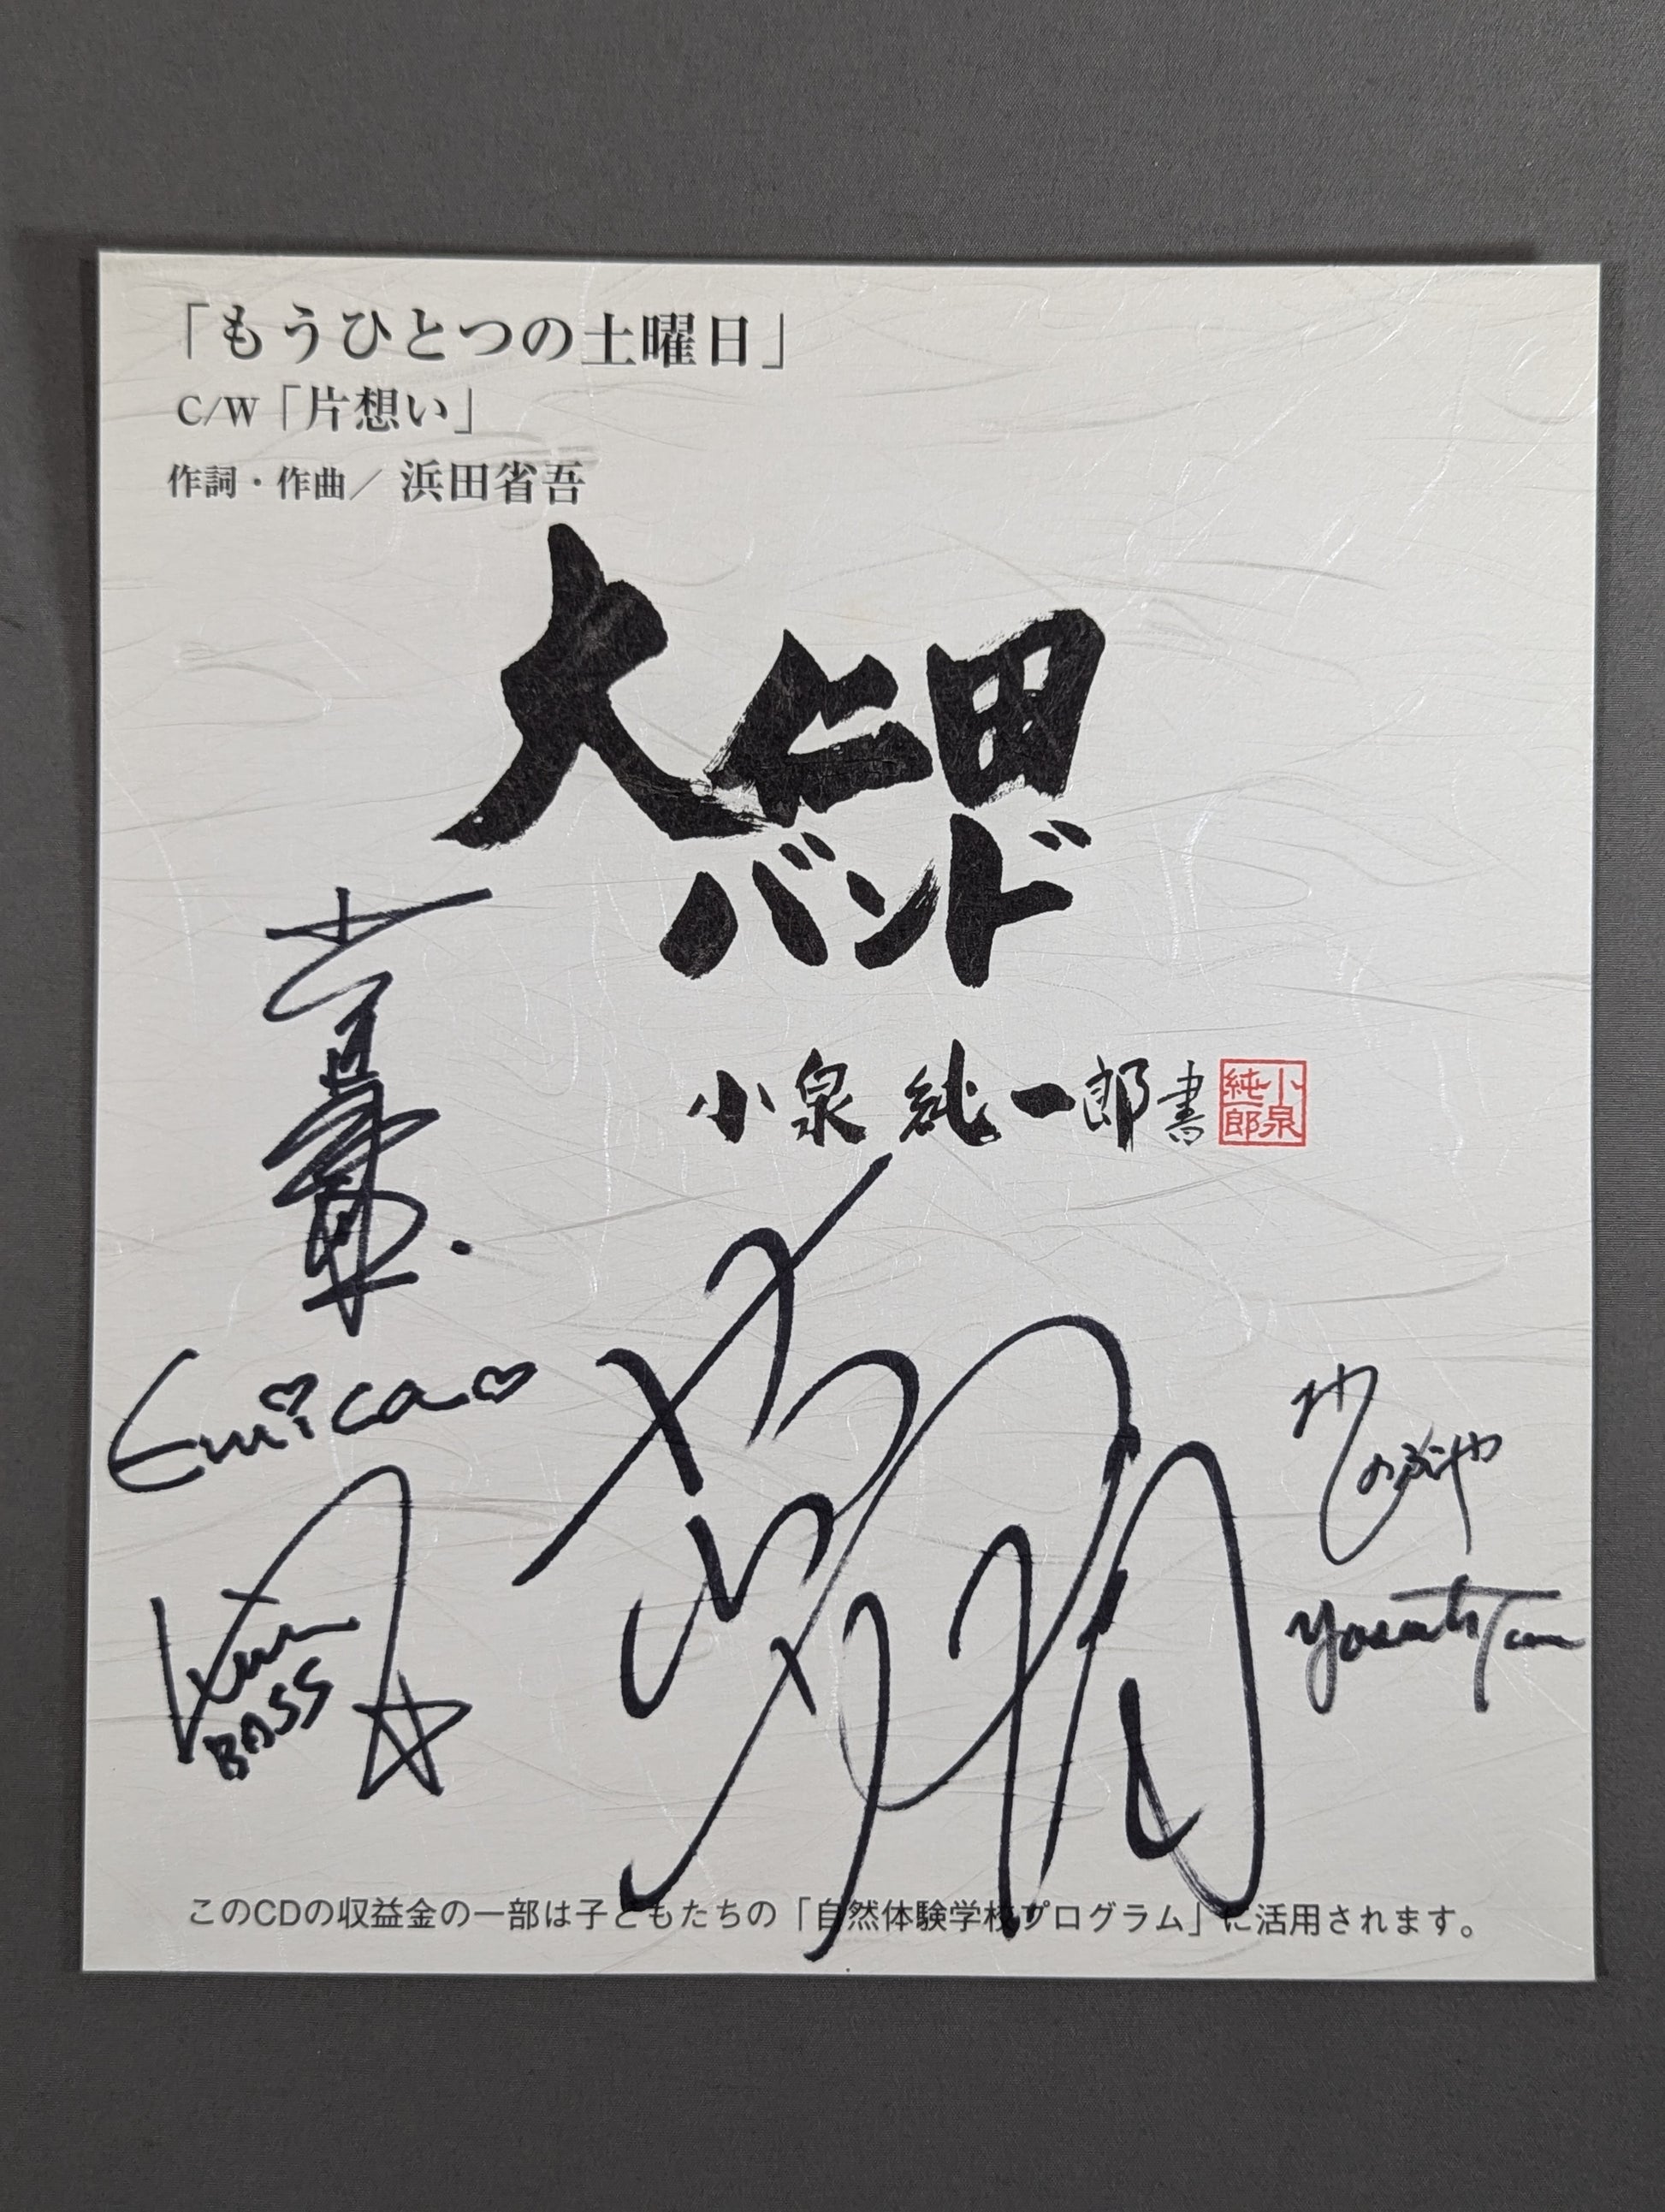 「もうひとつの土曜日」
C/W「片想い」
作詞・作曲／ 浜田省吾
大仁田
バンド
小泉 純一郎 書
小泉
純一郎
Emica
BASS
このCDの収益金の一部は子どもたちの「自然体験学校プログラム」に活用されます。